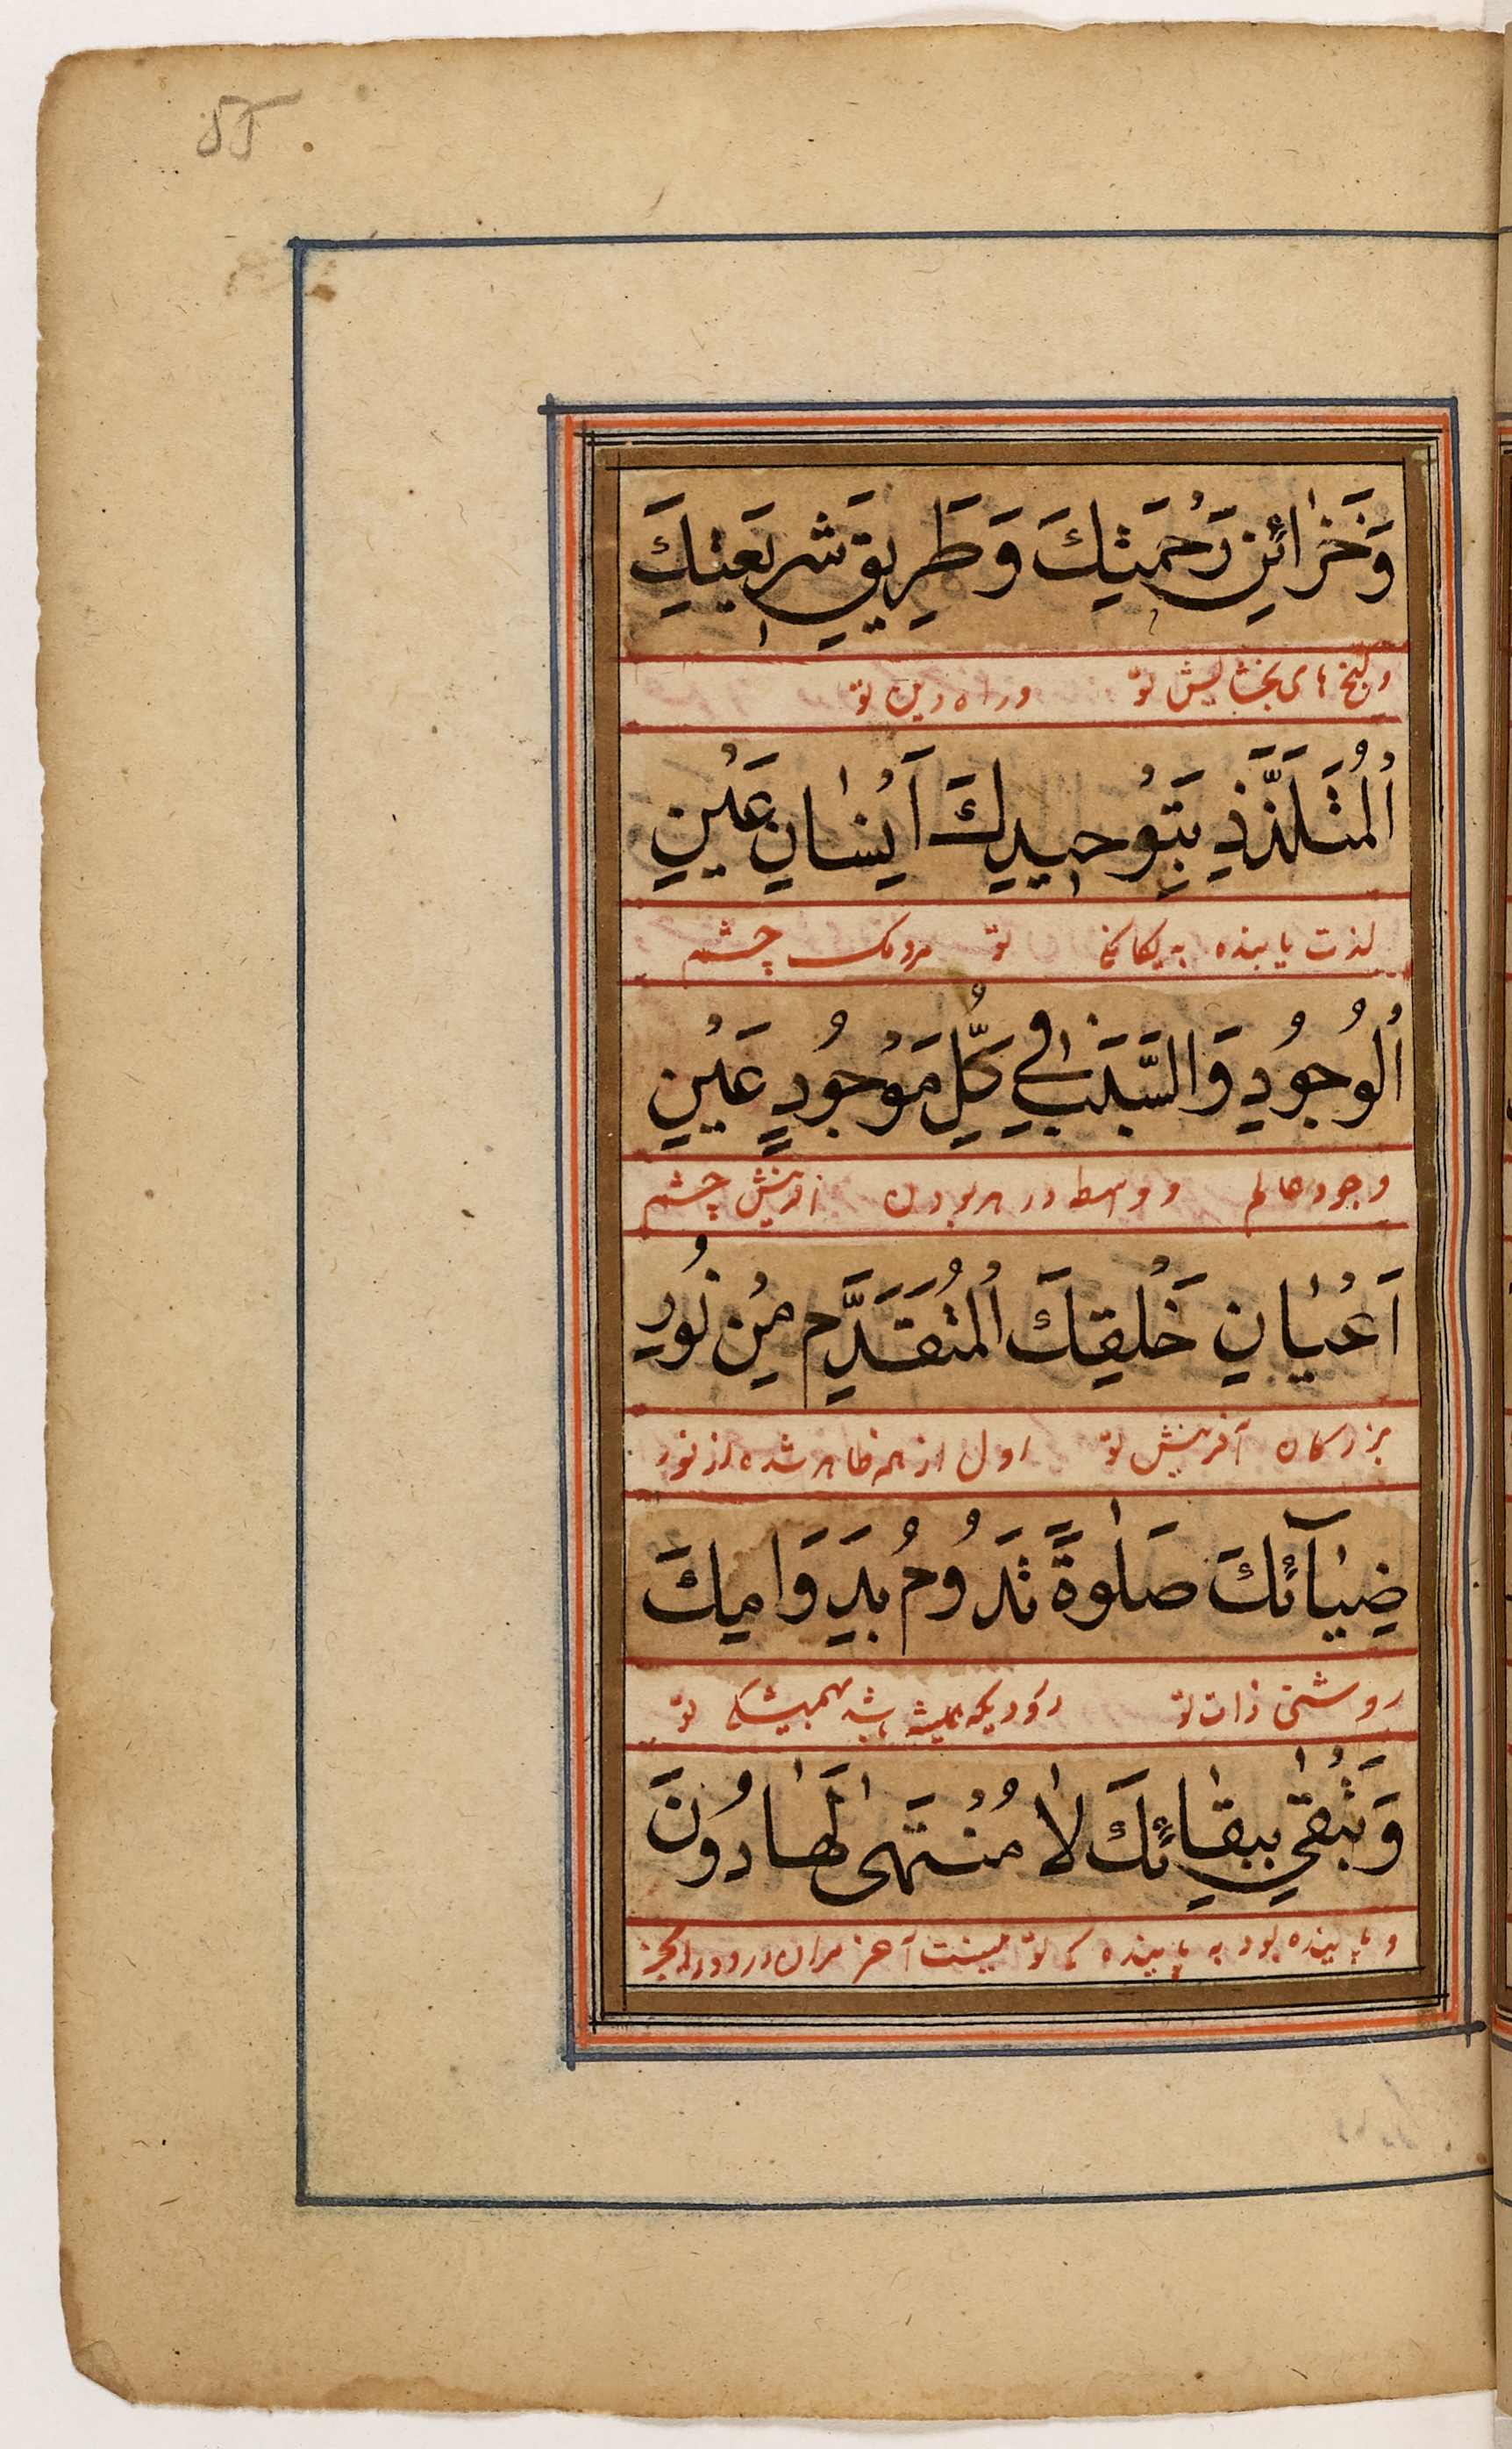 وَخَزٰائِنِ رَحْمَتِكَ وَطَرِيقِ شَرِيعَتِكَ
و گنجهای بخشایش تو و راه دین تو
اَلْمُتَلَذِّذِ بِتَوْحِيدِكَ اَنْسٰانِ عَيْنِ
لذت یابنده به یکانکی تو مردمک چشم
اَلْوُجُودِ وَالسَّبَبِ فِي كُلِّ مَوْجُودٍ عَيْنِ
وجود عالم و واسطه در هر بودن چشم
اَعْيٰانِ خَلْقِكَ الْمُتَقَدِّمِ مِنْ نُورِ
بزرگان آفرینش تو اول از همه ظاهر شده از نور
ضِيٰآئِكَ صَلٰوةً تَدُومُ بِدَوَامِكَ
روشنی ذات تو درودیکه همیشه باشد همیشگی تو
وَتَبْقٰى بِبَقٰائِكَ لاٰ مُنْتَهٰى لَهٰا دُونَ
و پاینده بود به پایندگی تو نیست آخر مران درود را بجز